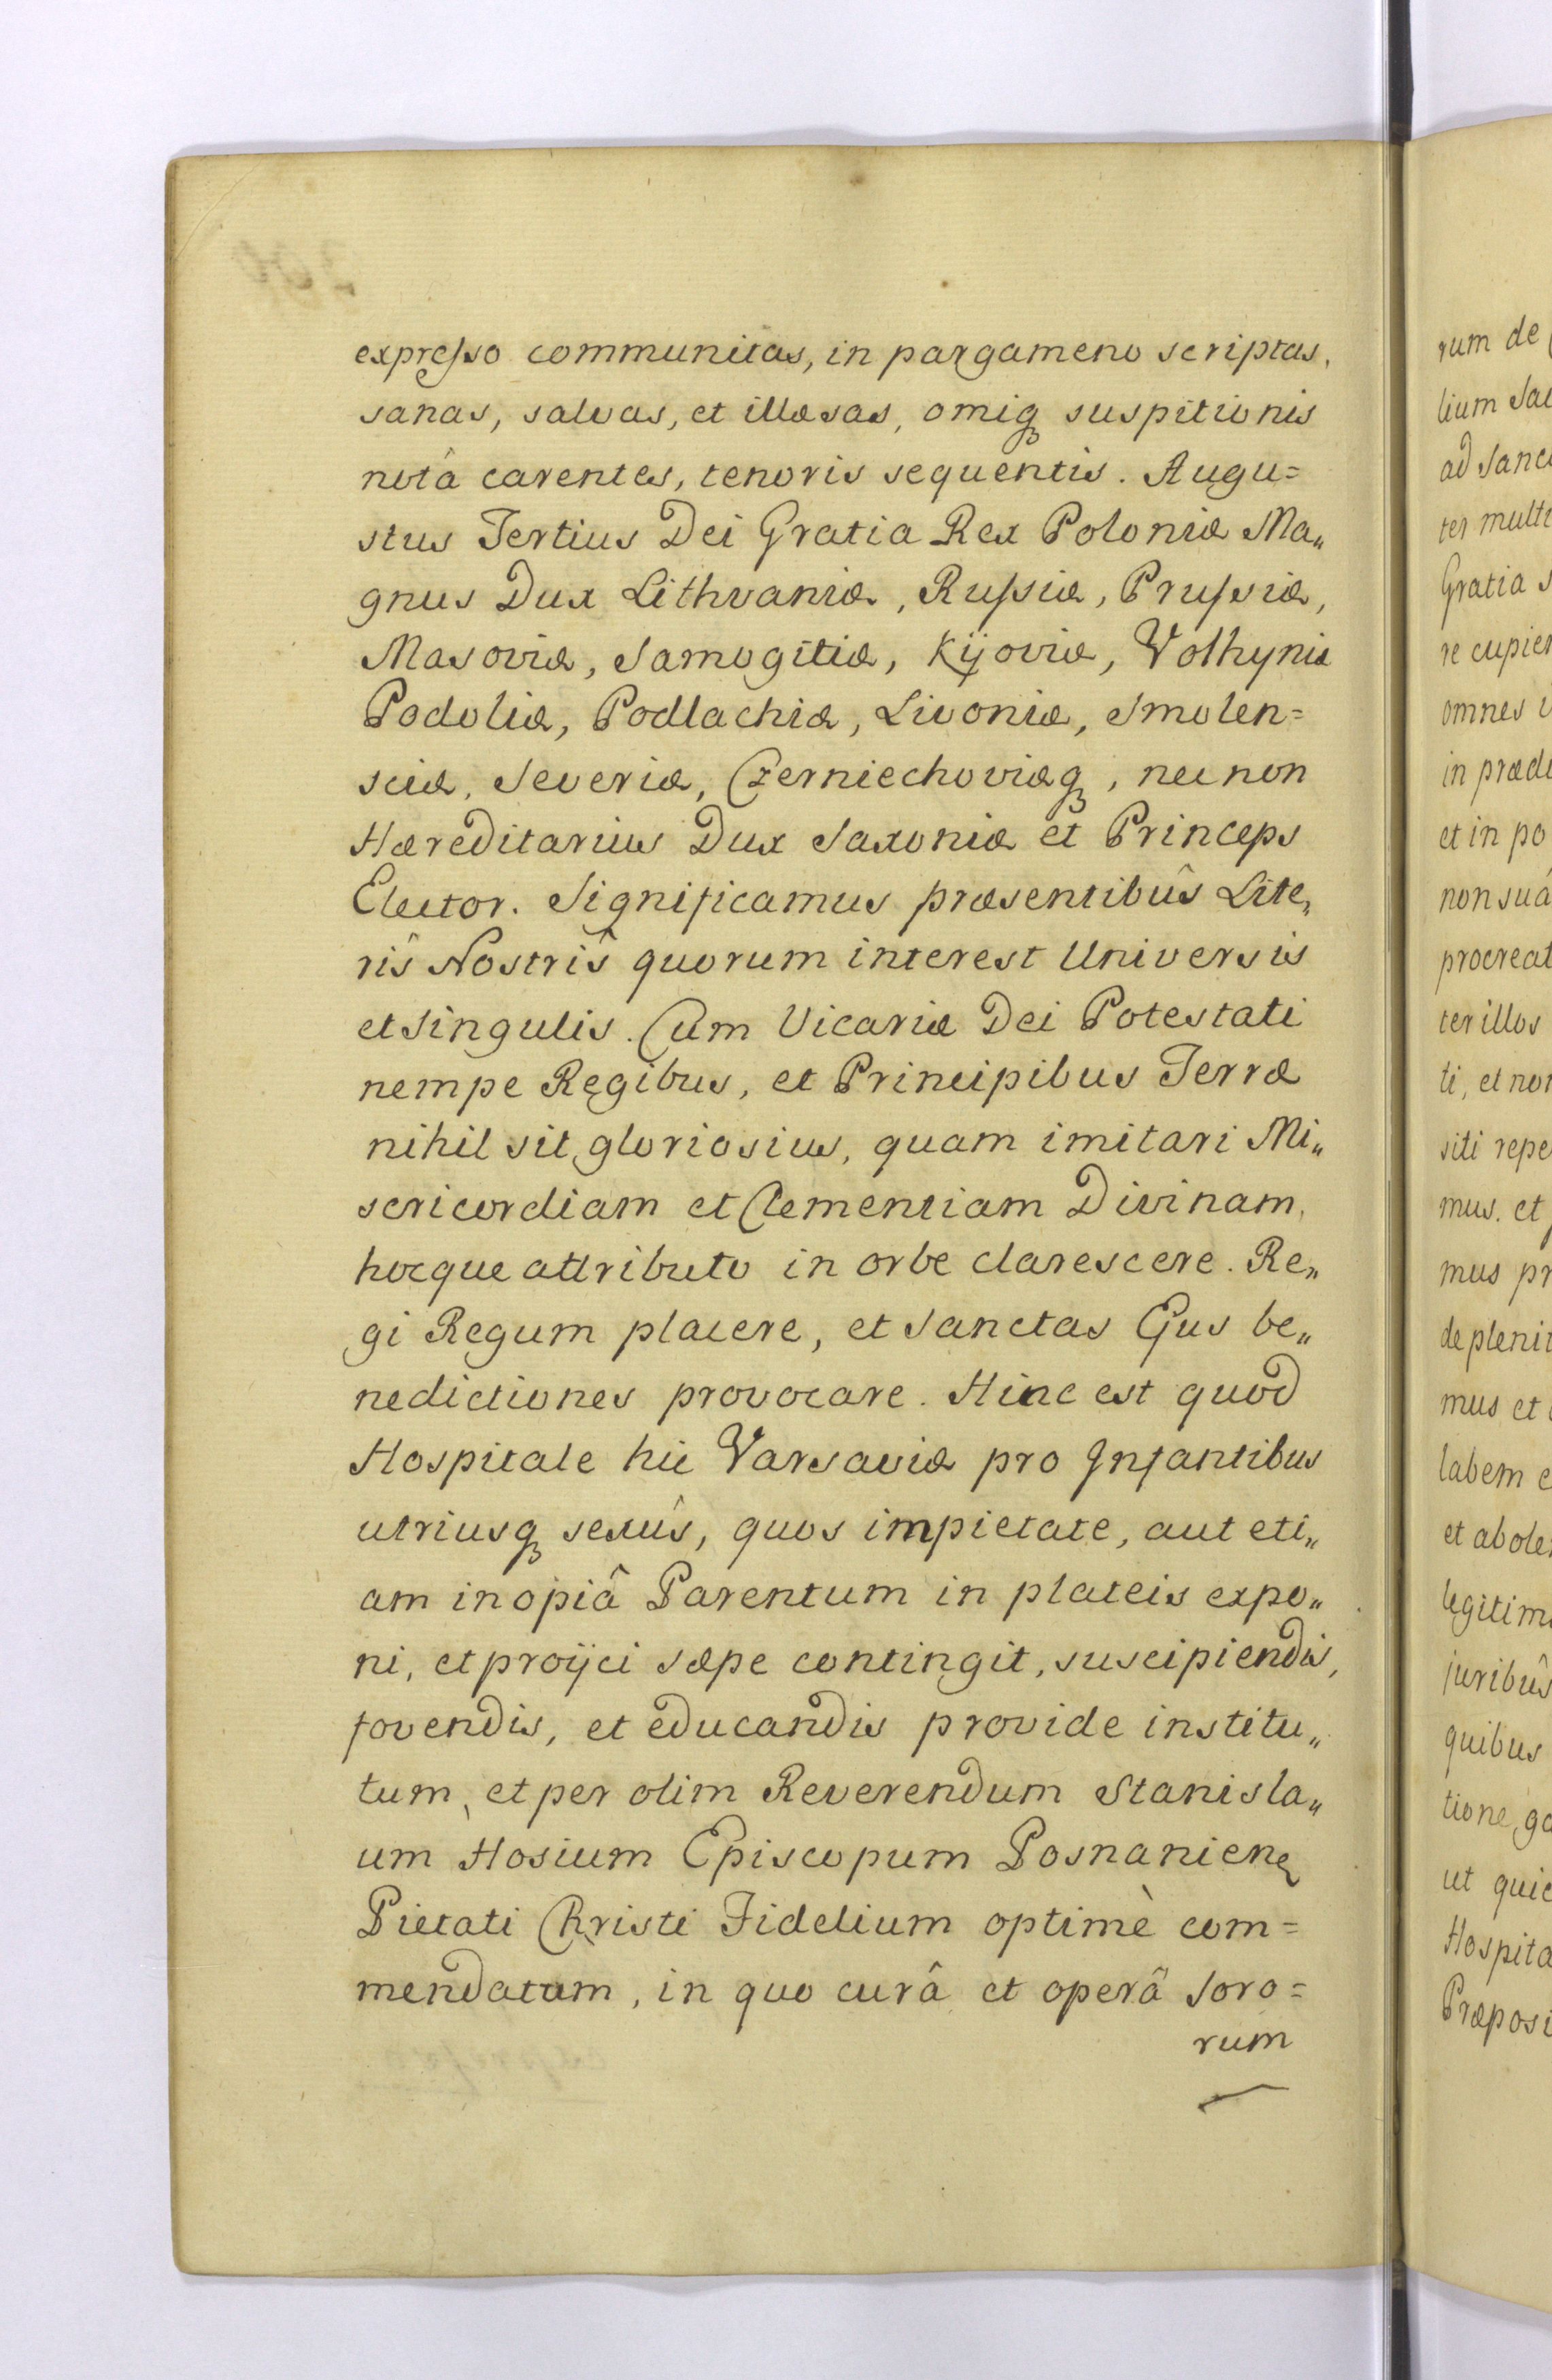 expresso communitas, in pargameno scriptas,
sanas, salvas, et illæsas, omiq suspitionis
notâ carentes, tenoris sequentis. Augu=
stus Tertius Dei Gratia Rex Poloniæ Ma„
gnus Dux Lithvaniæ, Russiæ, Prussiæ,
Masoviæ, Samogitiæ, Kijoviæ, Volhyniæ
Podoliæ, Podlachiæ, Livoniæ, Smolen=
sciæ, Severiæ, Czerniechoviæq, nec non
Hæreditarius Dux Saxoniæ et Princeps
Elector. Significamus præsentibûs Lite„
rîs Nostrîs quorum interest Universis
et Singulis. Cum Vicariæ Dei Potestati
nempe Regibus, et Principibus Terræ
nihil sit gloriosius, quam imitari Mi„
sericordiam et Clementiam Divinam,
hocque attributo in orbe clarescere. Re„
gi Regum placere, et Sanctas Ejus be„
nedictiones provocare. Hinc est quod
Hospitale hic Varsaviæ pro Infantibus
utriusq sexûs, quos impietate, aut eti„
am inopiâ Parentum in plateis expo„
ni, et proijci sæpe contingit, suscipiendis,
fovendis, et educandis provide institu„
tum, et per olim Reverendum Stanisla„
um Hosium Episcopum Posnanien
Pietati Christi Fidelium optimè com=
mendatum, in quo curâ et operâ Soro=
rum
rum de
lium Sac
ad Sanc
ter multi
Gratia s
re cupien
omnes i
in prædi
et in po
non suâ
procreat
ter illos
ti, et non
siti repe
mus. et
mus pr
de pleni
mus et
labem e
et abole
legitim
juribûs
quibus
tione ga
ut quic
Hospita
Præposi